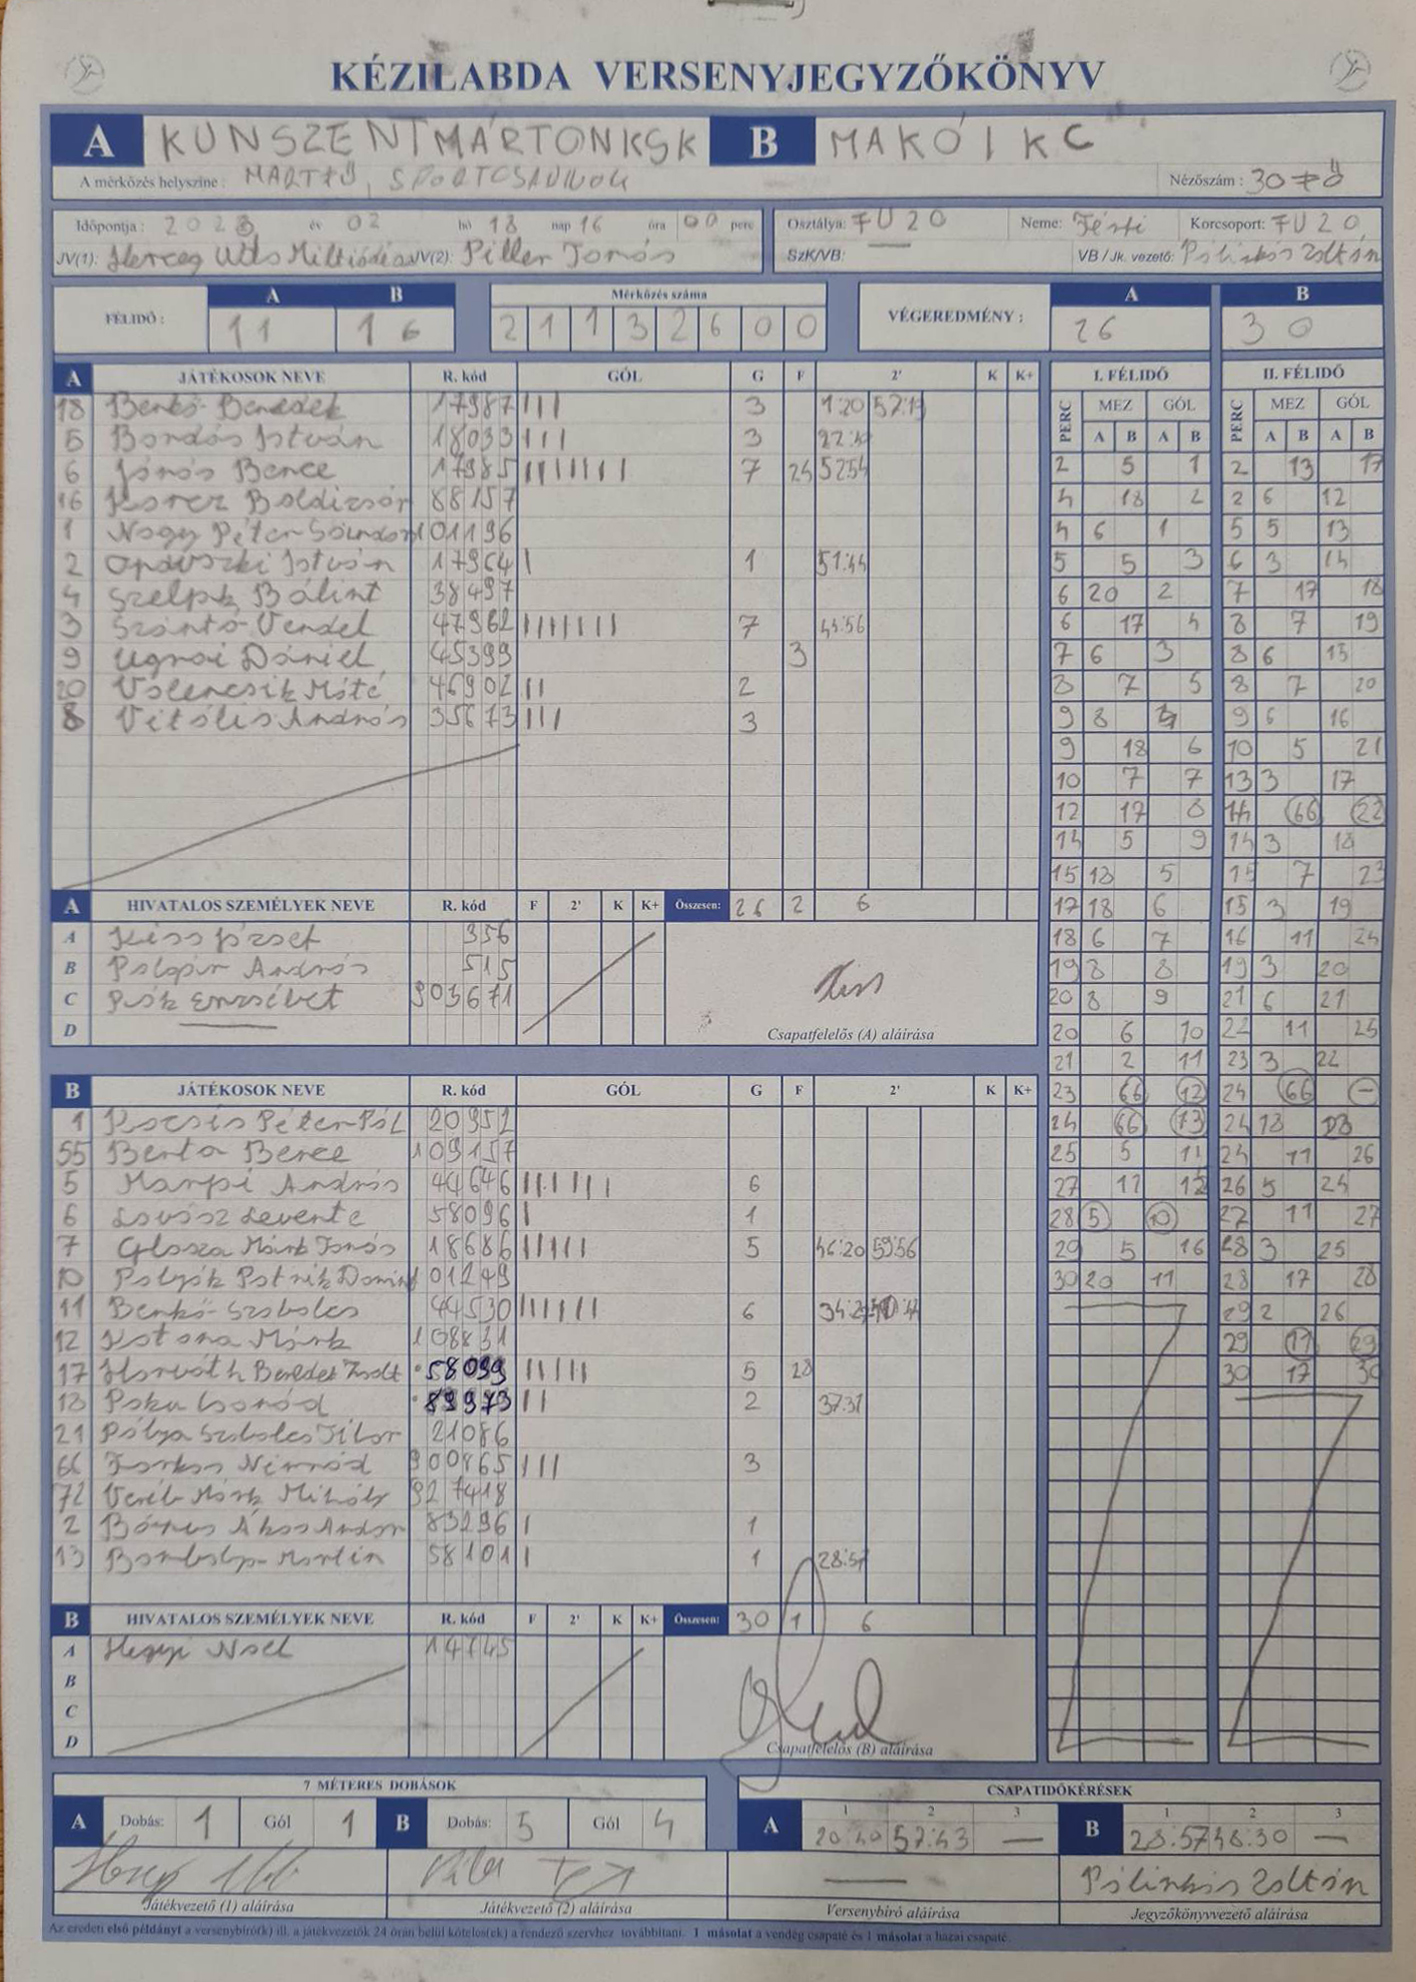 KÉZILABDA VERSENYJEGYZŐKÖNYV
A KUNSZENTMÁRTONKSK B MAKÓI KC
A mérkőzés helyszíne : MARTFŰ, SPORTCSARNOK Nézőszám : 30
Időpontja : 2023 év 02 hó 18 nap 16 óra 00 perc Osztálya: FU20 Neme: Férfi Korcsoport: FU20
JV(1): Herceg JV(2): Piller Tamás SzK/VB: — VB / Jk. vezető: Pálinkás Zoltán
FÉLIDŐ : A 11 B 16 Mérkőzés száma 21132600 VÉGEREDMÉNY : A 26 B 30
A JÁTÉKOSOK NEVE R. kód GÓL G F 2' K K+
18 Benkó Benedek 17987 III 3 1:20 57:19
5 Bordás István 18033 III 3
6 Jónás Bence 17985 IIIIIII 7 52:54
16 Boldizsár 88157
1 Nagy Péter Sándor 101196
2 István 17964 I 1 51:44
4 Bálint 38497
3 Szántó Vendel 47962 IIIIIII 7 44:56
9 Ugrai Dániel 45399 3
20 Valencsik Máté 46902 II 2
8 Vitális András 35673 III 3
A HIVATALOS SZEMÉLYEK NEVE R. kód F 2' K K+ Összesen: 26 2 6
A Kiss József 356
B András 515
C Erzsébet 903671
D
Csapatfelelős (A) aláírása
B JÁTÉKOSOK NEVE R. kód GÓL G F 2' K K+
1 Kocsis Péter Pál 20952
55 Berta Bence 109157
5 András 44646 IIIIII 6
6 Lovász Levente 58096 I 1
7 Márk Tamás 18686 IIIII 5 46:20 59:56
10 Patrik 01249
11 Benkó Szabolcs 44530 IIIIII 6
12 Katona Márk 108831
17 Horváth Zsolt 58099 IIIII 5 28
18 89973 II 2 37:31
21 Pálya Szabolcs Tibor 21086
66 Farkas Nimród 900865 III 3
72 Veréb Márk Mihály 927418
2 Ákos Andor 83296 I 1
13 Martin 58101 I 1 28:57
B HIVATALOS SZEMÉLYEK NEVE R. kód F 2' K K+ Összesen: 30 1 6
A Hegyi Noel 14745
B
C
D
Csapatfelelős (B) aláírása
I. FÉLIDŐ II. FÉLIDŐ
PERC MEZ GÓL PERC MEZ GÓL
A B A B A B A B
2 5 1 2 13 17
4 18 2 2 6 12
4 6 1 5 5 13
5 5 3 6 3 14
6 20 2 7 17 18
6 17 4 8 7 19
7 6 3 8 6 15
8 7 5 8 7 20
9 8 4 9 6 16
9 18 6 10 5 21
10 7 7 13 3 17
12 17 8 14 66 22
14 5 9 14 3 18
15 18 5 15 7 23
17 18 6 15 3 19
18 6 7 16 11 24
19 8 8 19 3 20
20 8 9 21 6 21
20 6 10 22 11 25
21 2 11 23 3 22
23 66 12 24 66 —
24 66 13 24 18 23
25 5 14 24 11 26
27 11 15 26 5 24
28 5 10 27 11 27
29 5 16 28 3 25
30 20 11 28 17 28
29 2 26
29 11 29
30 17 30
7 MÉTERES DOBÁSOK CSAPATIDŐKÉRÉSEK
A Dobás: 1 Gól 1 B Dobás: 5 Gól 4 A 1 2 3 20:40 57:43 — B 1 2 3 28:57 48:30 —
Pálinkás Zoltán
Játékvezető (1) aláírása Játékvezető (2) aláírása Versenybíró aláírása Jegyzőkönyvvezető aláírása
Az eredeti első példányt a versenybíró(k) ill. a játékvezetők 24 órán belül köteles(ek) a rendező szervhez továbbítani. 1 másolat a vendég csapaté és 1 másolat a hazai csapaté.